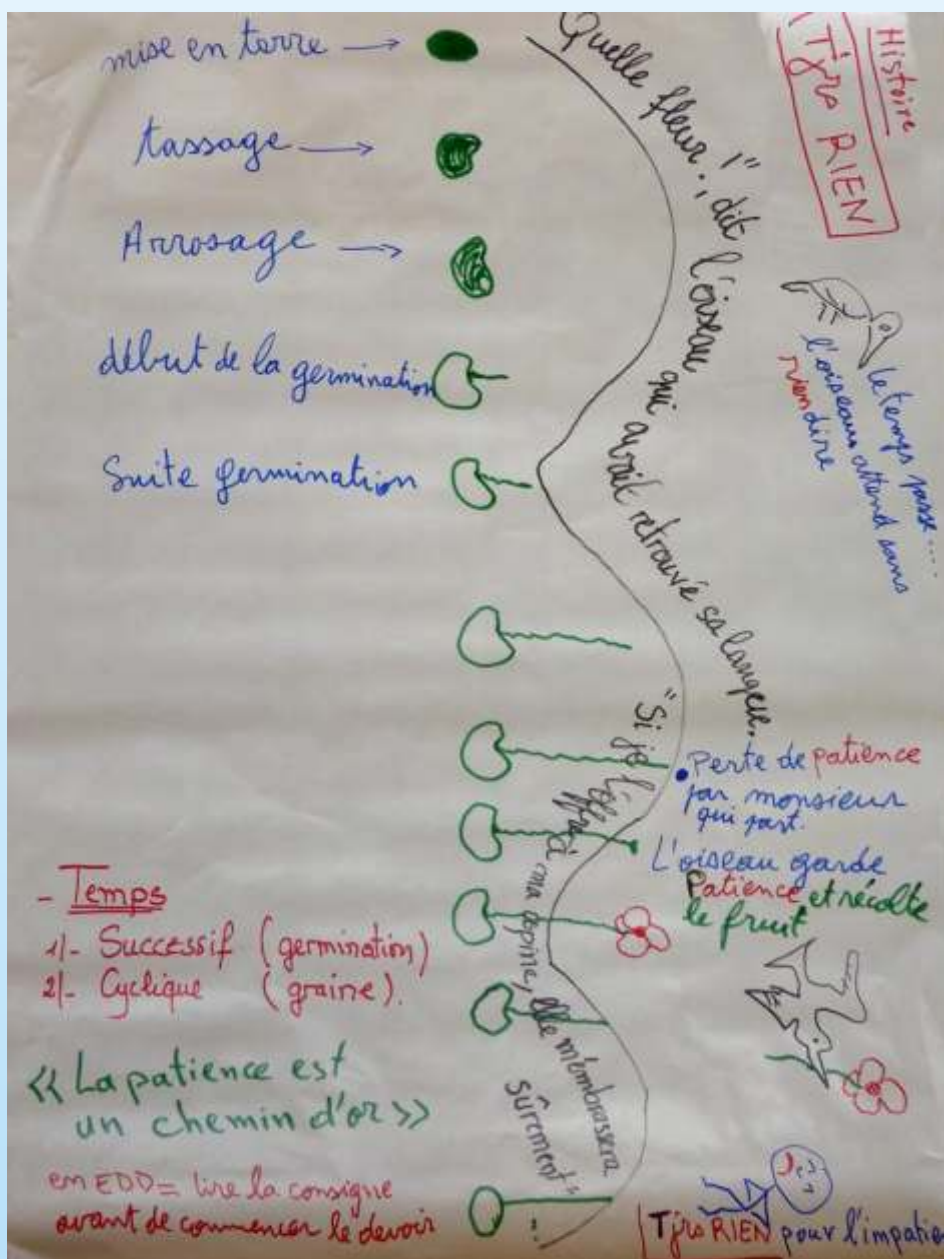 Histoire
Tjrs RIEN
mise en terre
tassage
Arrosage
début de la germination
Suite germination
Quelle fleur !", dit l'oiseau qui avait retrouvé sa langeue.
"Si je l'offre à ma copine, elle m'embrassera
sûrement"...
le temps passe....
l'oiseau attend sans
rien dire
Perte de patience
par monsieur
qui part.
L'oiseau garde
Patience et récolte
le fruit
- Temps
1/- Successif (germination)
2/- Cyclique (graine).
<< La patience est
un chemin d'or >>
en EDD = lire la consigne
avant de commencer le devoir
Tjrs RIEN pour l'impatie